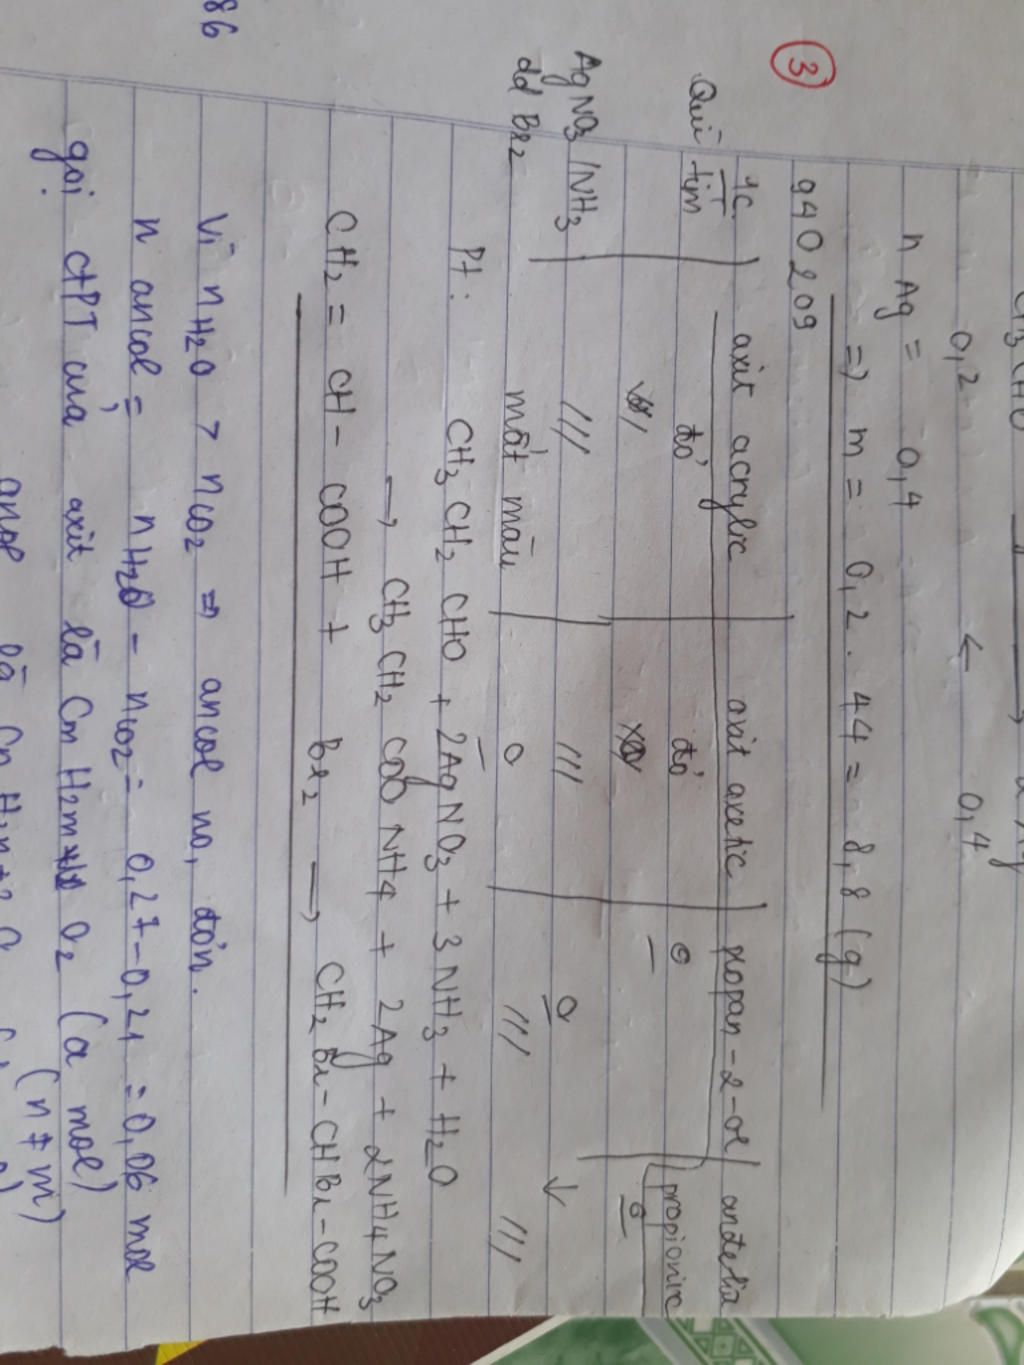 CH3CHO
0,2 ← 0,4
n Ag = 0,4
=) m = 0,2 . 44 = 8,8 (g)
③ 940209
TT axit acrylic axit axetic propan-2-ol anđehit
propionic
Quì tím đỏ đỏ 0 0
AgNO3/NH3 /// /// 0 ↓
dd Br2 mất màu 0 /// ///
Pt: CH3CH2CHO + 2AgNO3 + 3NH3 + H2O
→ CH3CH2COONH4 + 2Ag + 2NH4NO3
CH2 = CH - COOH + Br2 → CH2Br-CHBr-COOH
86 Vì nH2O > nCO2 => ancol no, đơn.
n ancol = nH2O - nCO2 = 0,27-0,21 = 0,06 mol
gọi CTPT của axit là CmH2mO2 (a mol)
(n ≠ m)
ancol là CnH2n+2O